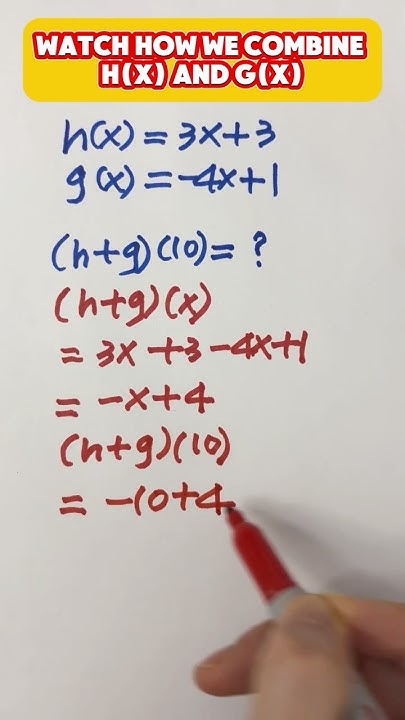 WATCH HOW WE COMBINE
H(X) AND G(X)
h(x) = 3x+3
g(x) = -4x+1
(h+g)(10) = ?
(h+g)(x)
= 3x+3-4x+1
= -x+4
(h+g)(10)
= -10+4